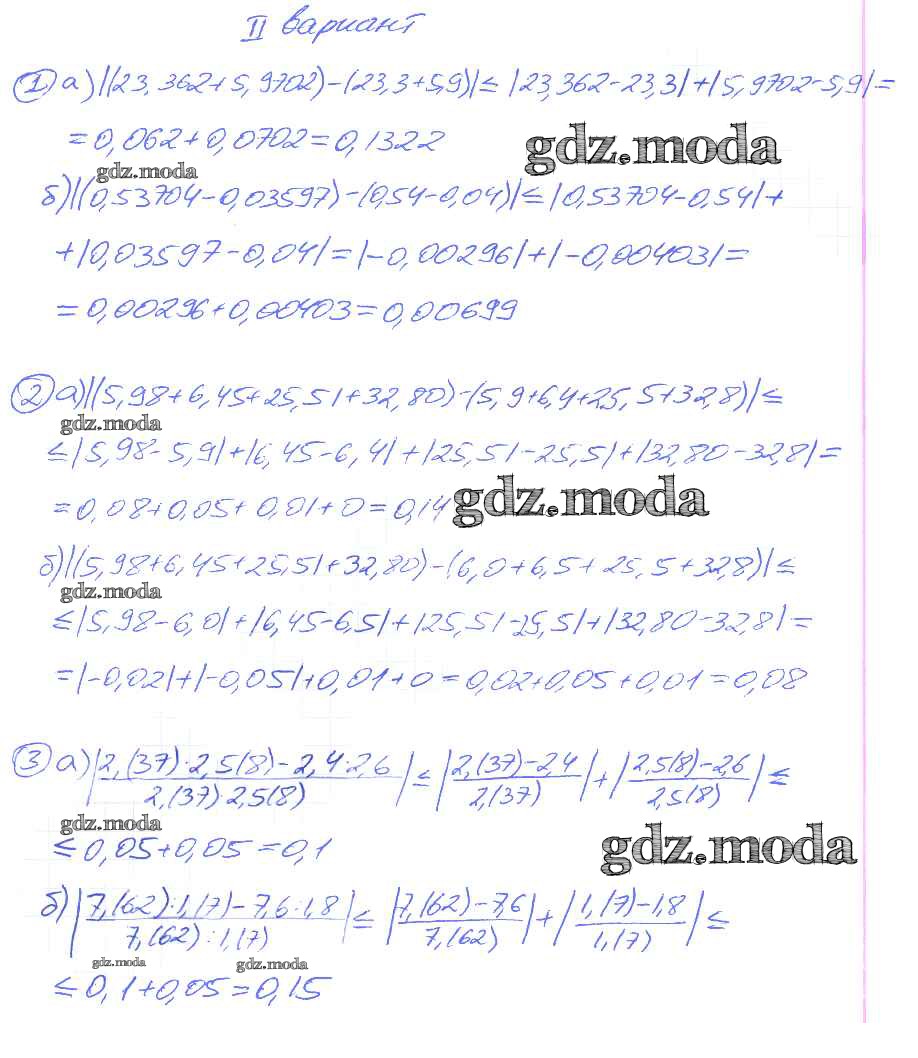 II вариант
① а) |(23,362+5,9702)-(23,3+5,9)| ≤ |23,362-23,3|+|5,9702-5,9|=
=0,062+0,0702=0,1322
gdz.moda
gdz.moda
б) |(0,53704-0,03597)-(0,54-0,04)| ≤ |0,53704-0,54|+
+|0,03597-0,04|=|-0,00296|+|-0,00403|=
=0,00296+0,00403=0,00699
② а) |(5,98+6,45+25,51+32,80)-(5,9+6,4+25,5+32,8)| ≤
gdz.moda
≤ |5,98-5,9|+|6,45-6,4|+|25,51-25,5|+|32,80-32,8|=
=0,08+0,05+0,01+0=0,14
gdz.moda
б) |(5,98+6,45+25,51+32,80)-(6,0+6,5+25,5+32,8)| ≤
gdz.moda
≤ |5,98-6,0|+|6,45-6,5|+|25,51-25,5|+|32,80-32,8|=
=|-0,02|+|-0,05|+0,01+0=0,02+0,05+0,01=0,08
③ а) |(2,(37)·2,5(8)-2,4·2,6)/(2,(37)·2,5(8))| ≤ |(2,(37)-2,4)/(2,(37))|+|(2,5(8)-2,6)/(2,5(8))| ≤
gdz.moda
≤ 0,05+0,05=0,1
gdz.moda
б) |(7,(62):1,(7)-7,6:1,8)/(7,(62):1,(7))| ≤ |(7,(62)-7,6)/(7,(62))|+|(1,(7)-1,8)/(1,(7))| ≤
gdz.moda
gdz.moda
≤ 0,1+0,05=0,15